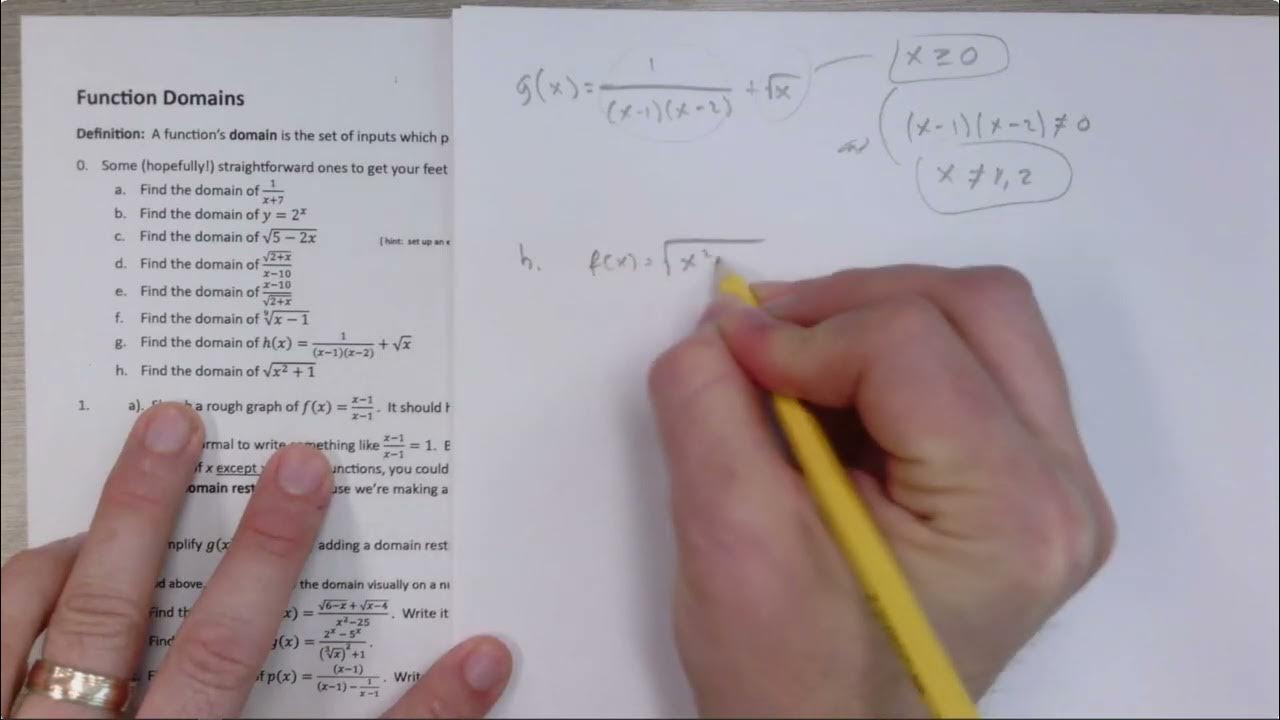 Function Domains
Definition: A function's domain is the set of inputs which p
0. Some (hopefully!) straightforward ones to get your feet
a. Find the domain of 1/(x+7)
b. Find the domain of y = 2ˣ
c. Find the domain of √(5 − 2x) [hint: set up an e
d. Find the domain of √(2+x)/(x−10)
e. Find the domain of (x−10)/√(2+x)
f. Find the domain of ⁹√(x − 1)
g. Find the domain of h(x) = 1/((x−1)(x−2)) + √x
h. Find the domain of √(x² + 1)
1. a). a rough graph of f(x) = (x−1)/(x−1). It should h
rmal to write something like (x−1)/(x−1) = 1. B
of x except unctions, you could
omain rest use we're making a
mplify g(x adding a domain rest
d above, the domain visually on a nu
Find th x) = (√(6−x) + √(x−4))/(x²−25). Write it
Find g(x) = (2ˣ − 5ˣ)/((∛x)² + 1).
of p(x) = (x−1)/((x−1) − 1/(x−1)). Writ
g(x) = 1/((x-1)(x-2)) + √x
x ≥ 0
and (x-1)(x-2) ≠ 0
x ≠ 1, 2
h. f(x) = √(x²